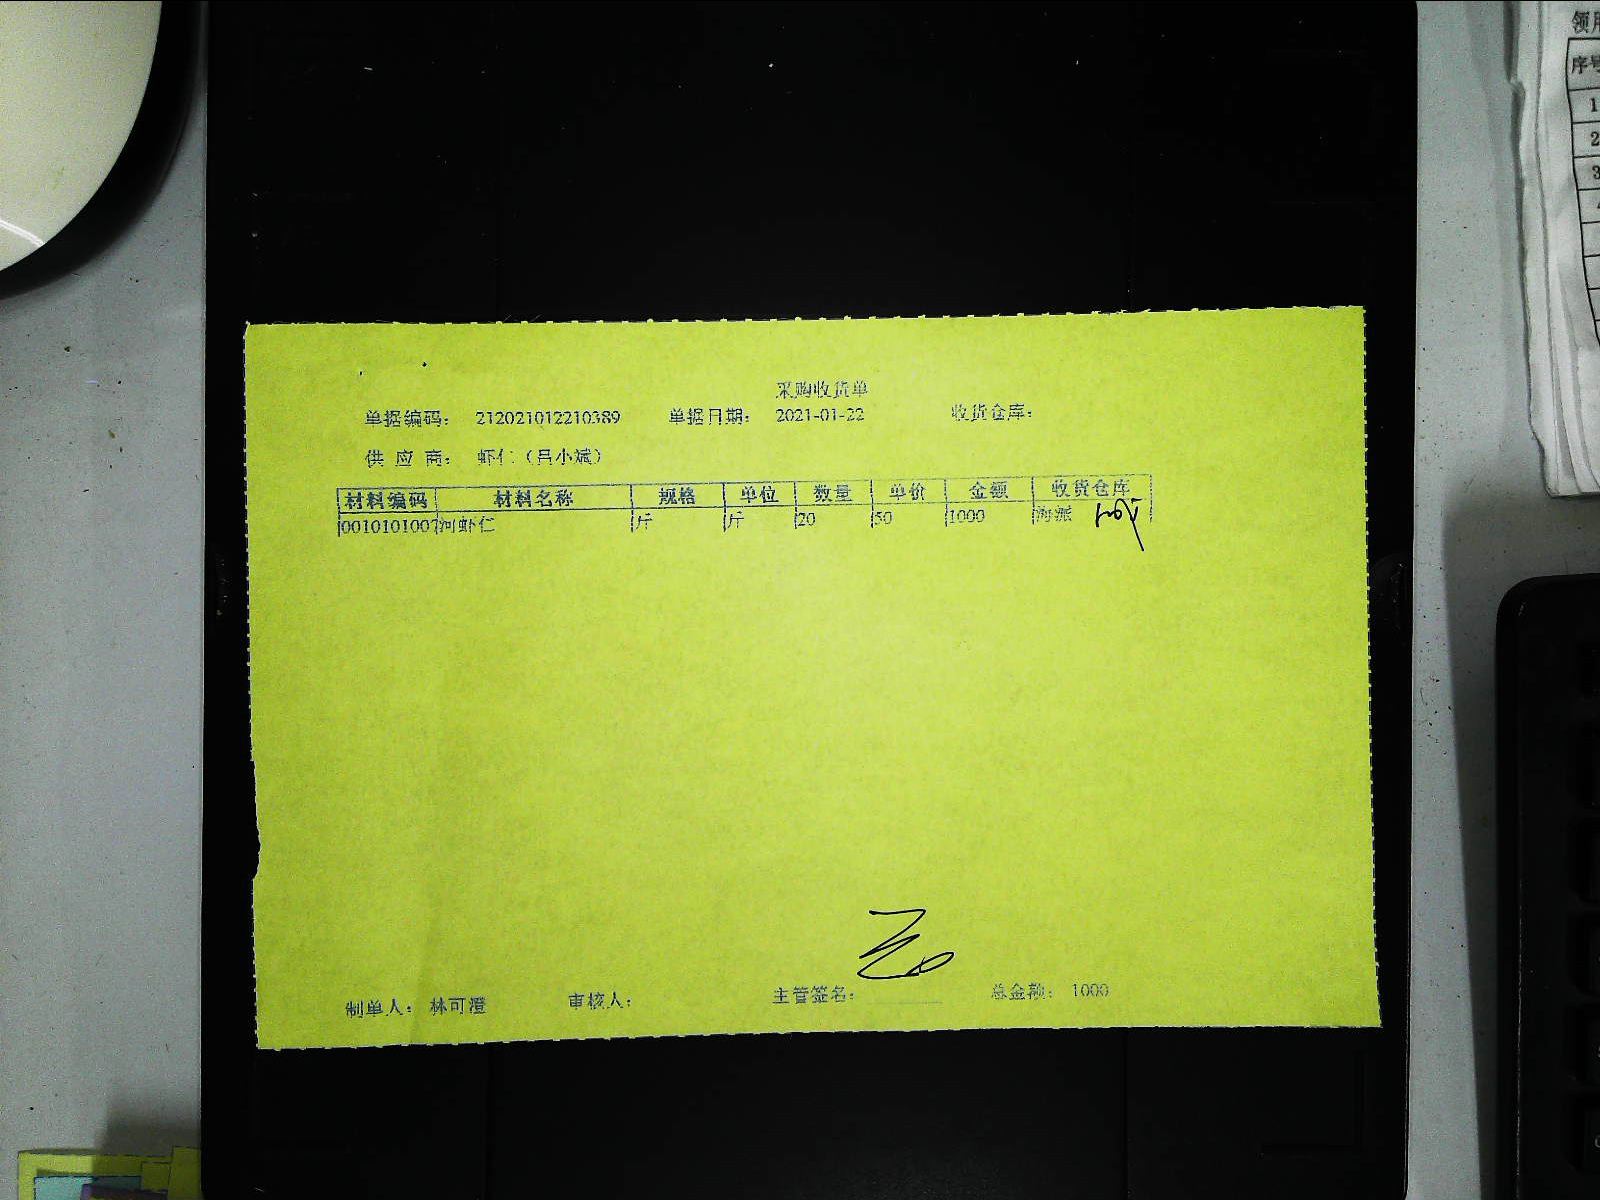 采购收货单
单据编码： 212021012210389 单据日期： 2021-01-22 收货仓库：
供 应 商： 虾仁（吕小斌）
材料编码 材料名称 规格 单位 数量 单价 金额 收货仓库
0010101007 河虾仁 斤 斤 20 50 1000 海派
制单人： 林可澄 审核人： 主管签名： 总金额： 1000
领用
序号
1
2
3